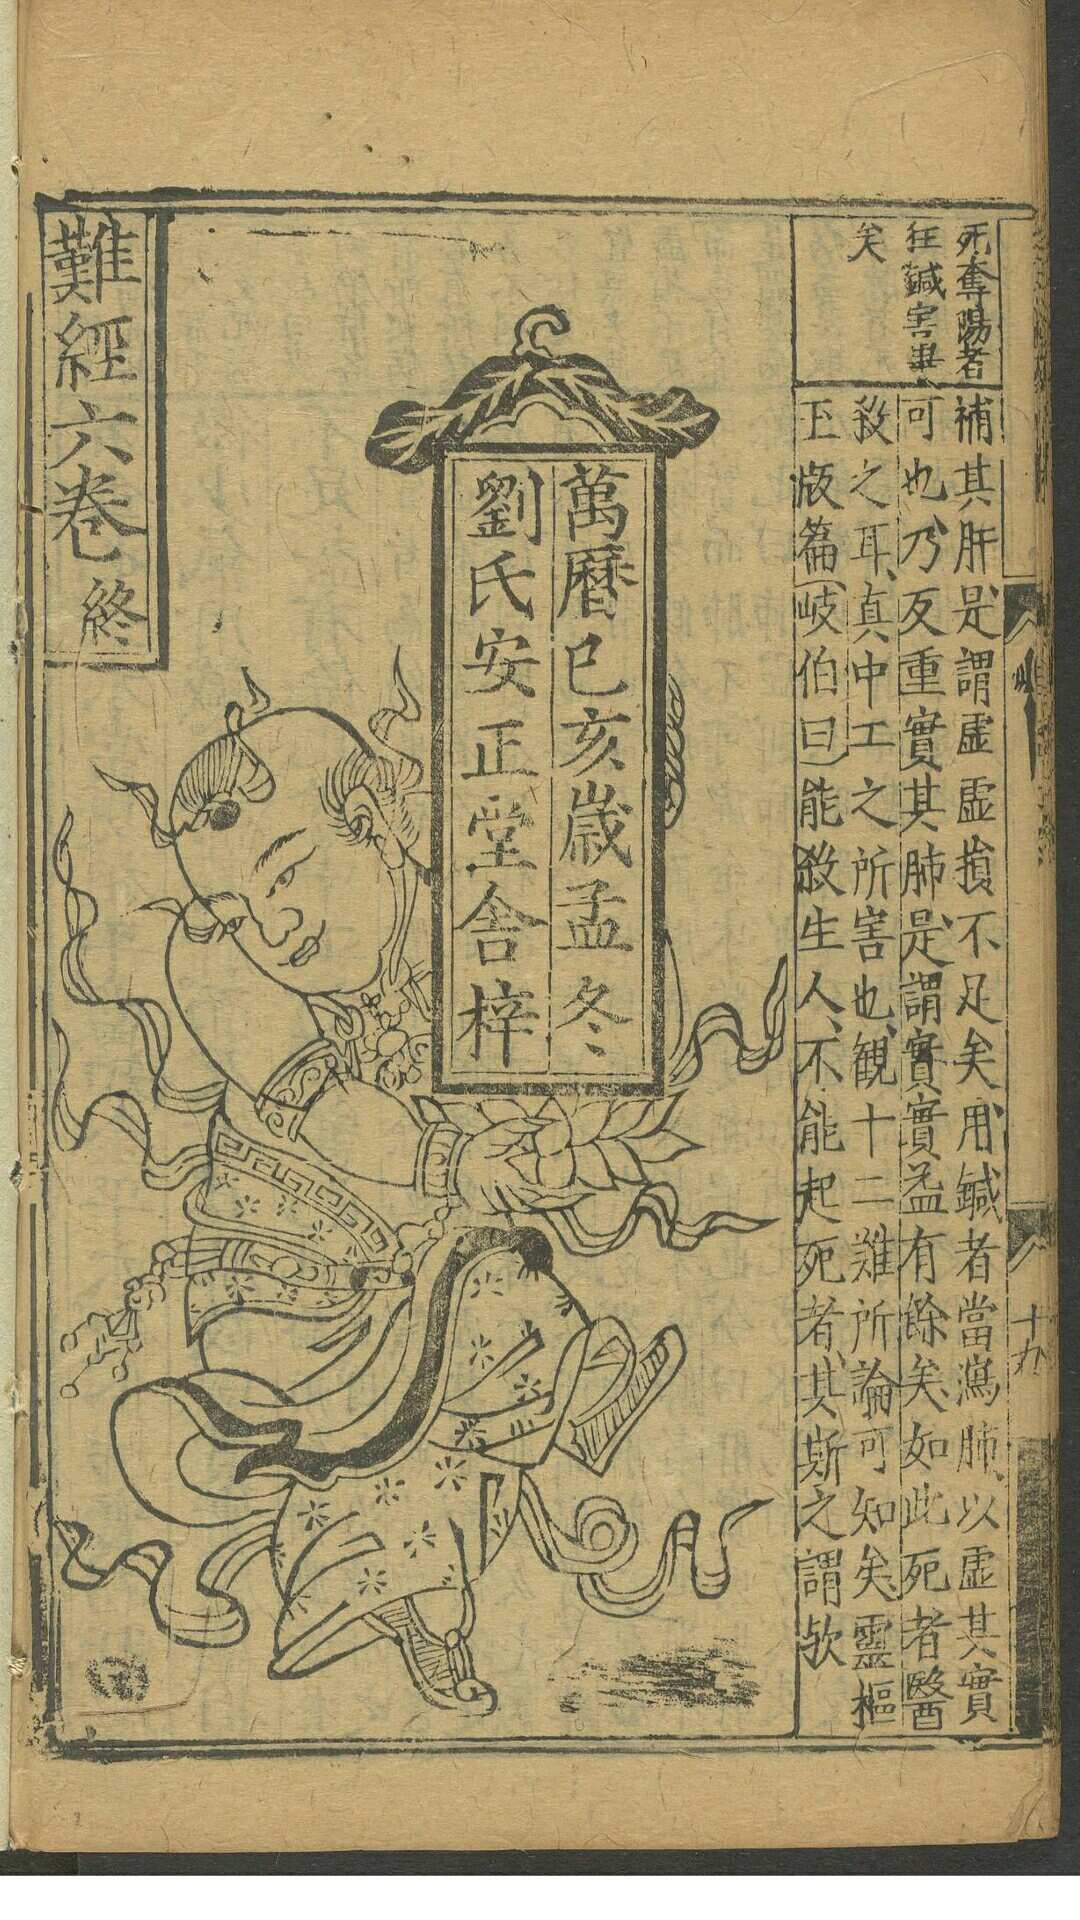 死奪陽者
狂鍼害畢
矣
補其肝是謂虛虛損不足矣用鍼者當瀉肺以虛其實
可也乃反重實其肺是謂實實益有餘矣如此死者醫
殺之耳真中工之所害也觀十二難所論可知矣靈樞
玉版篇岐伯曰能殺生人不能起死者其斯之謂歟
萬曆己亥歲孟冬
劉氏安正堂舍梓
難經六卷終
十九